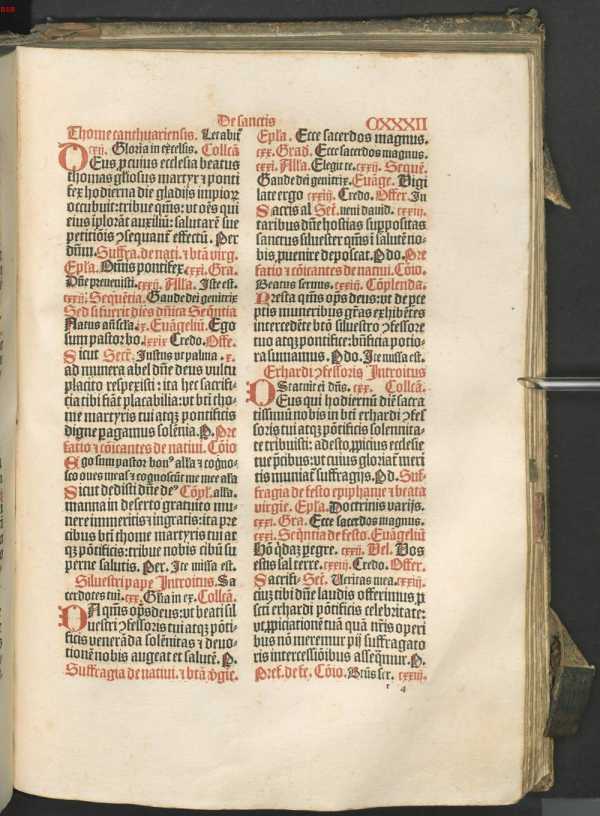 De sanctis CXXXII
Thome canthuariensis. Letabit᷑
cxij. Gloria in excelsis. Collcā
DEus ꝓ cuius ecclesia beatus
thomas gl̄iosus martyr ⁊ ponti
fex hodierna die gladijs impioꝝ
occubuit: tribue q̄ms: vt oēs qui
eius īplorāt auxiliū: salutarē sue
petitiōis ꝯsequant᷑ effectū. Per
dūm. Suffra. de nati. ⁊ btā virg.
Epl̄a. Om̄is pontifex. cxxi. Gra.
Dn̄e preuenisti. cxxij. All̓a. Iste est.
cxxij. Sequētia. Gaude dei genitrix
Sed si fuerit dies dn̄ica Seq̄ntia
Natus añ secl̓a. ix. Euāgeliū. Ego
sum pastor bo. lxxix Credo. Offe.
Sicut Secr̄. Iustus vt palma .x.
ad munera abel dn̄e deus vultu
placito respexisti: ita hec sacrifi-
cia tibi fiāt placabilia: vt bt̄i tho-
me martyris tui atqꝫ pontificis
digne pagamus solēnia. P. Pre
fatio ⁊ cōicantes de natiui. Cōio
Ego sum pastor bonꝰ all̓a ⁊ cogno-
sco oues meas ⁊ cognoscūt me mee all̓a
Sicut dedisti dn̄e deꝰ Cōpl̄. all̓a.
manna in deserto gratuito mu-
nere immeritis ⁊ ingratis: ita pre
cibus bt̄i thome martyris tui at
qꝫ pōtificis: tribue nobis cibū su
perne salutis. Per. Ite missa est.
Siluestri pape Introitus. Sa
cerdotes tui. cxx. Gl̓ia in ex. Collcā.
DA q̄ms op̄s deus: vt beati sil
uestri ꝯfessoris tui atqꝫ pōti-
ficis venerāda solēnitas ⁊ deuo-
tionē nobis augeat et salutē. P.
Suffragia de natiui. ⁊ btā v̓gīe.
Epl̄a. Ecce sacerdos magnus.
cxx. Grad. Ecce sacerdos magnus.
cxxi. All̓a. Elegit te. cxxij. Sequē.
Gaude dei genitrix. Euāge. Vigi
late ergo cxxiij. Credo. Offer. In
Sacris al Secr̄. ueni dauid. cxxiij.
taribus dn̄e hostias suppositas
sanctus siluester q̄ms ī salutē no-
bis, ꝓuenire deposcat. P do. Pre
fatio ⁊ cōicantes de natiui. Cōio.
Beatus seruus. cxxiij. Cōplenda.
Presta q̄ms op̄s deus: vt de ꝑce
ptis muneribus gr̄as exhibētes
intercedēte bt̄o siluestro ꝯfessore
tuo atqꝫ pontifice: bn̄ficia potio-
ra sumamus. P do. Ite missa est.
Erhardi ꝯfessoris Introitus
Statuit ei dn̄s. cxx. Collcā.
DEus qui hodiernū diē sacra
tissimū nobis in bt̄i erhardi ꝯfes
soris tui atqꝫ pōtificis solennita-
te tribuisti: adesto, ꝓpicius ecclesie
tue p̄cibus: vt cuius gloriat᷑ meri
tis muniat᷑ suffragijs. P d. Suf-
fragia de festo epiphanie ⁊ beata
virgie. Epl̄a. Doctrinis varijs.
cxxi. Gra. Ecce sacerdos magnus.
cxxi. Seq̄ntia de festo. Euāgeliū
Hō q̓daꝫ ꝑegre. cxxij. Vel. Vos
estis sal terre. cxxiij. Credo. Offer.
Sacrifi- Secr̄. Veritas mea. cxxiij.
ciuꝫ tibi dn̄e laudis offerimus ꝓ
sct̄i erhardi pōtificis celebritate:
vt ꝓpiciationē tuā quā nr̄is operi
bus nō meremur pij suffragato
ris intercessiōibus asseq̄mur. P.
Pref. de fe. Cōio. Btūs ser. cxxiij.
r 4